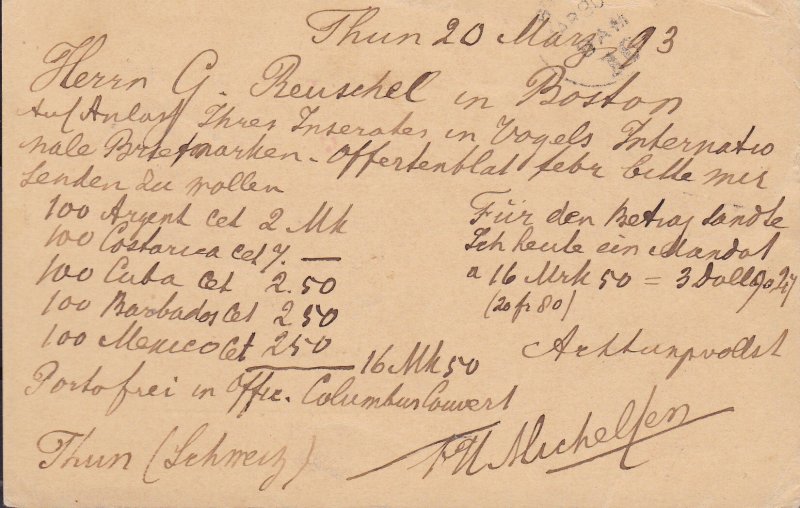 Thun 20 März 93
Herrn G. Reuschel in Boston
Auf Anlass Ihres Inserates in Vogels Internatio
nale Briefmarken-Offertenblat febr bitte mir
senden zu wollen
100 Argent Cet 2 Mk
100 Costarica cet 7. —
100 Cuba Cet 2.50
100 Barbados Cet 2 50
100 Mexico Cet 2 50
16 Mk 50
Portofrei in Offic. Columbus Couvert
Für den Betrag sandte
Ich heute ein Mandat
a 16 Mrk 50 = 3 Doll
(20 fr 80)
Achtungvollst
Thun (Schweiz)
Michelsen